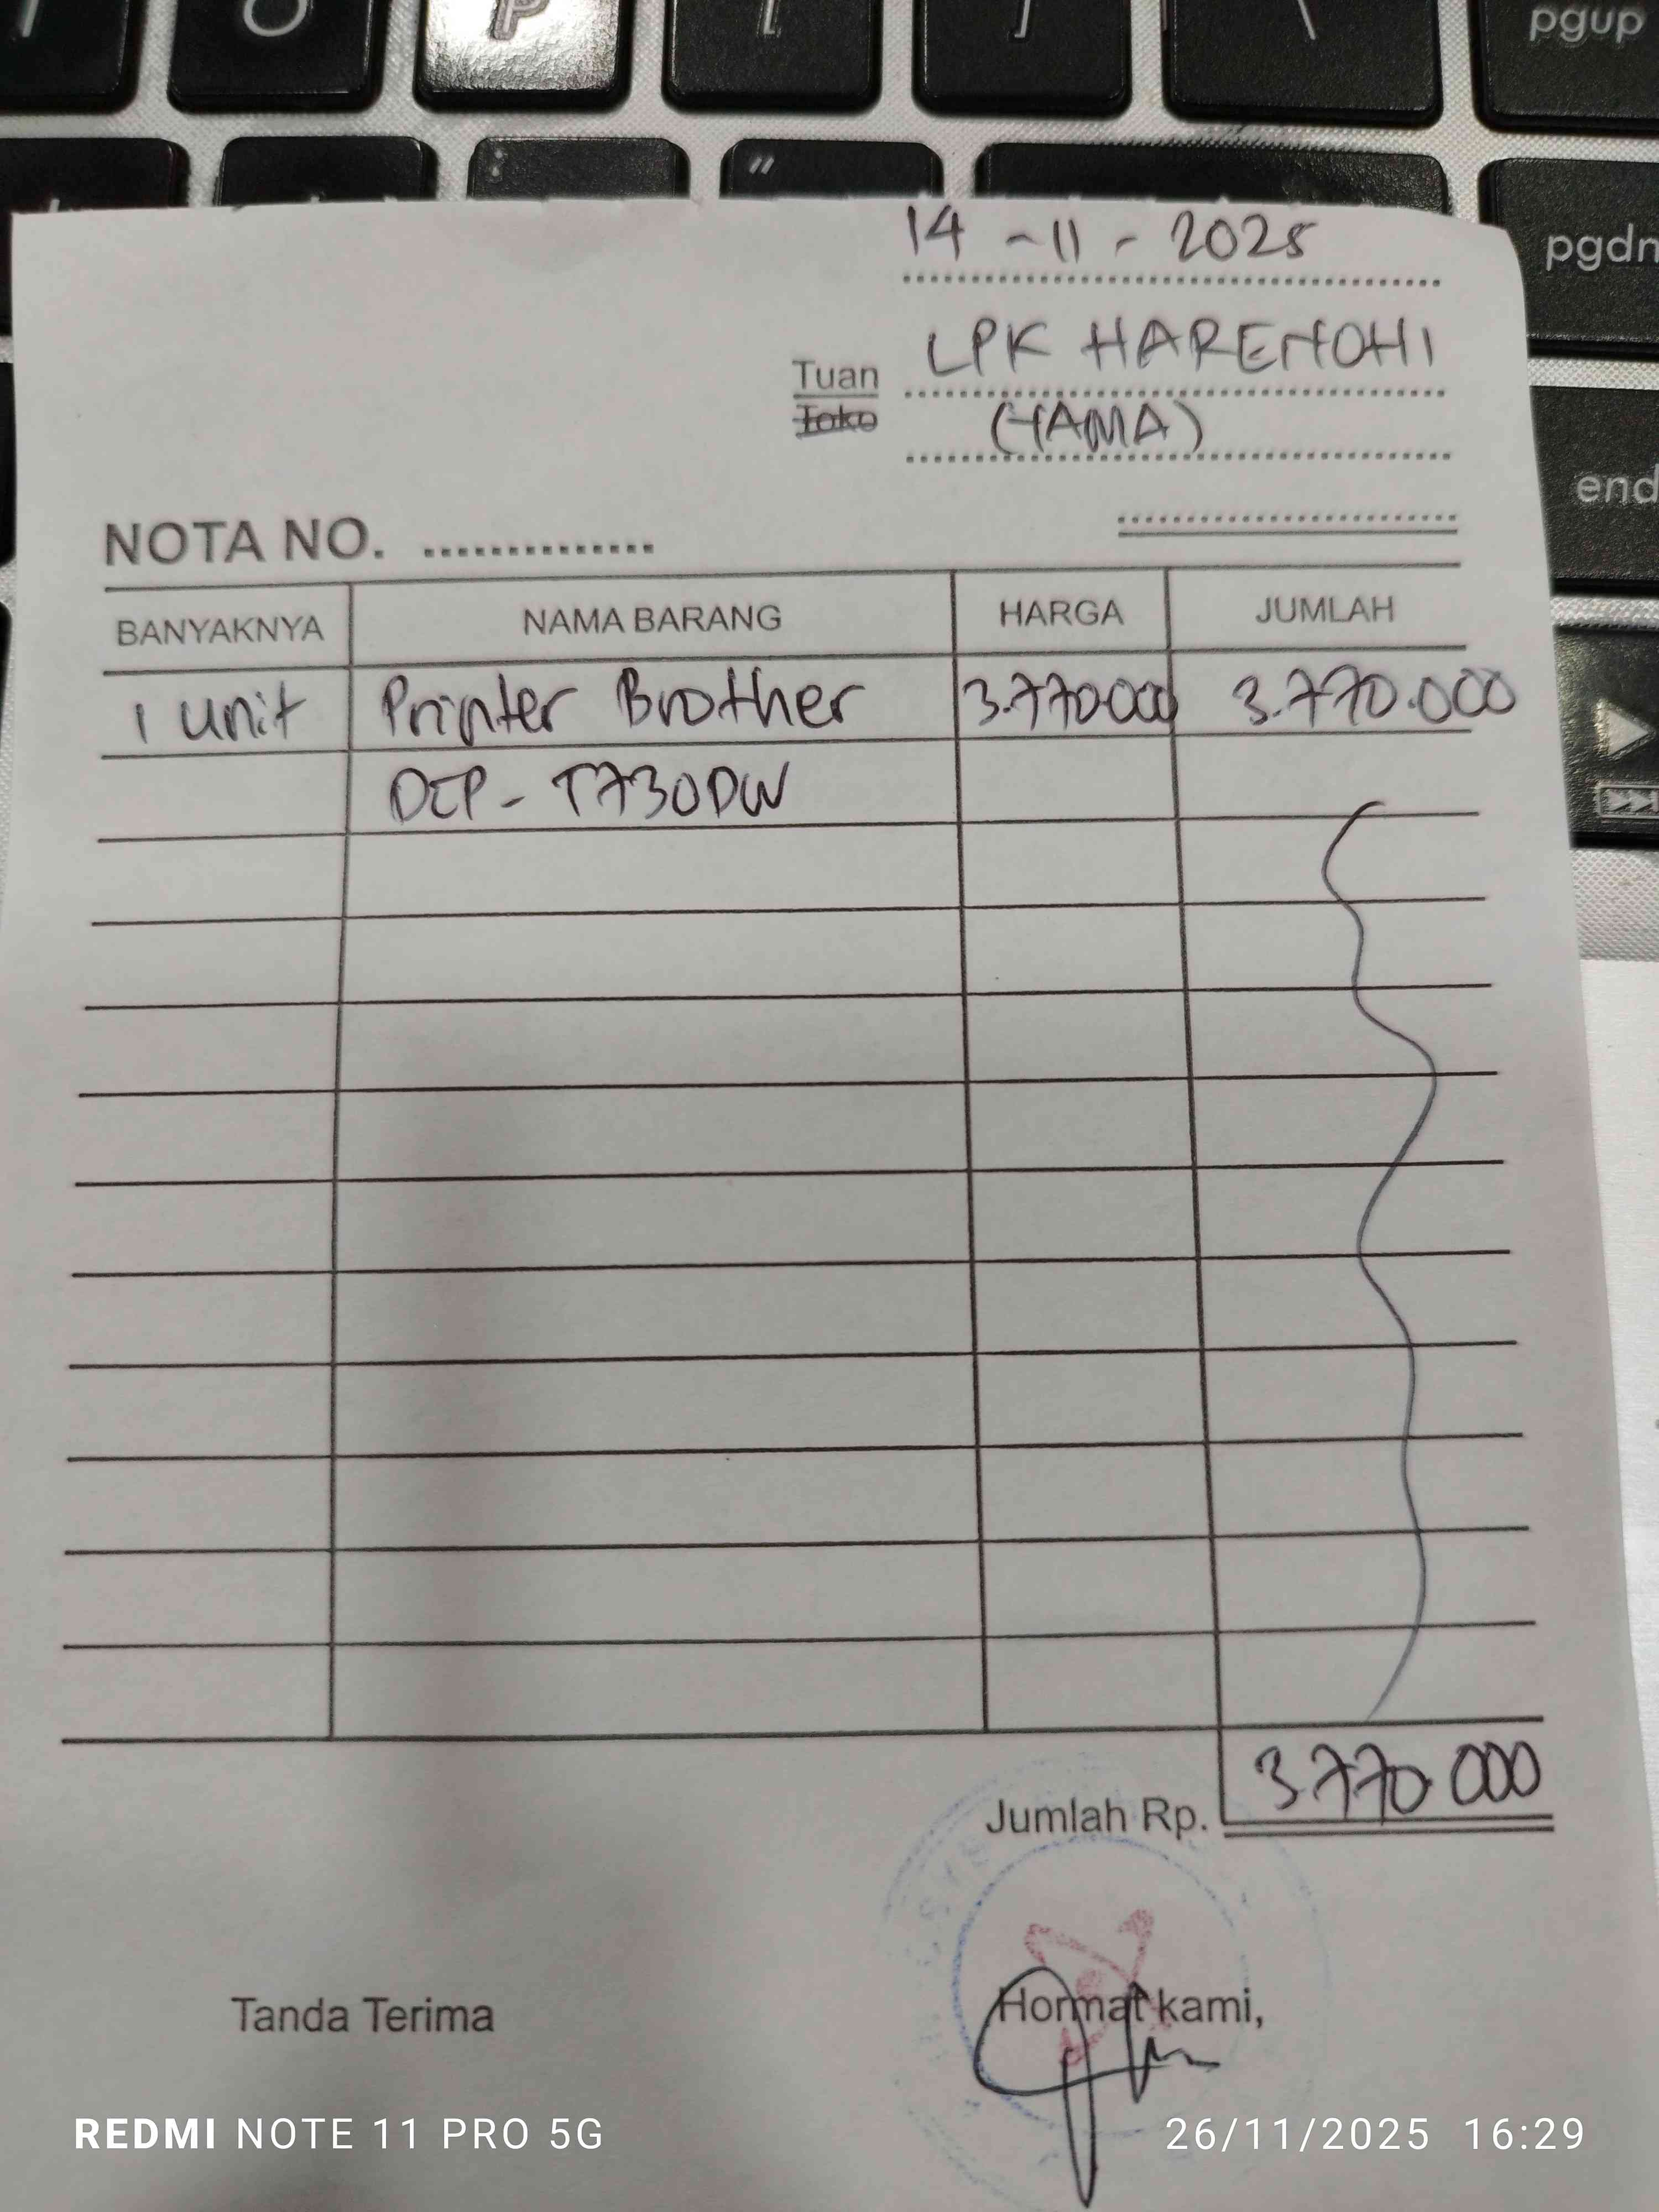 P
[
]
\
pgup
"
pgdn
end
14 - 11 - 2025
Tuan
LPK HARENOHI
Toko
(YAMA)
NOTA NO. ..............
BANYAKNYA NAMA BARANG HARGA JUMLAH
1 unit Printer Brother 3.770000 3.770.000
DCP - T730DW
Jumlah Rp. 3.770.000
Tanda Terima Hormat kami,
REDMI NOTE 11 PRO 5G 26/11/2025 16:29